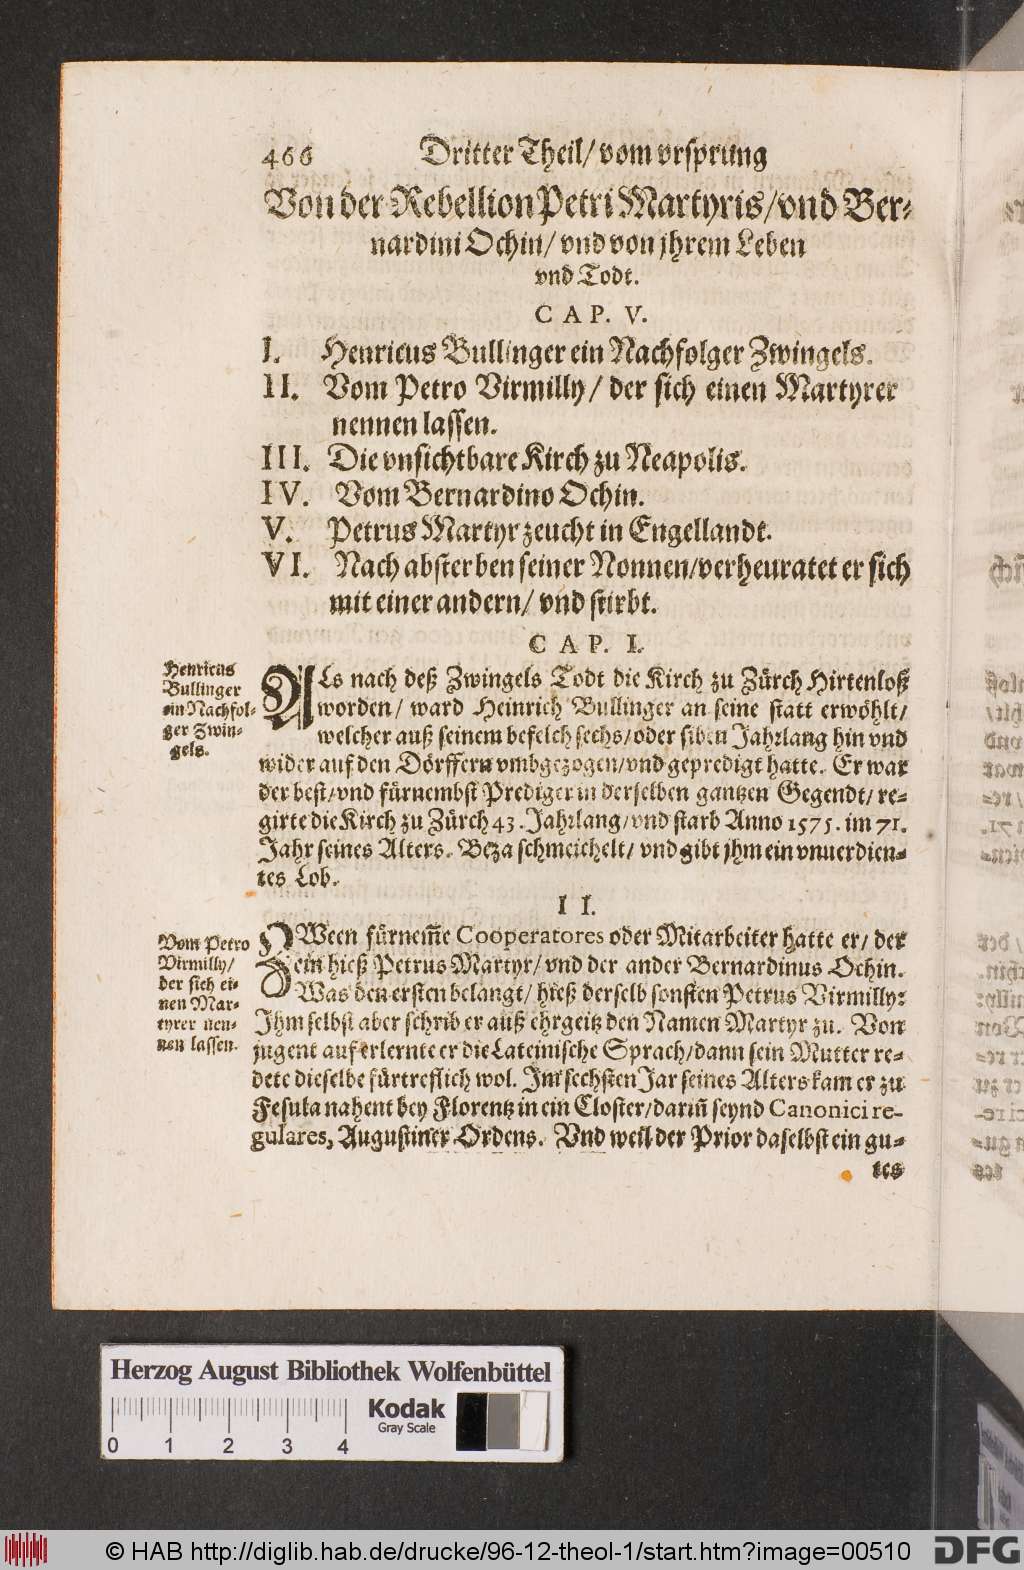 466 Dritter Theil/ vom vrsprung
Von der Rebellion Petri Martyris/ vnd Ber-
nardini Ochin/ vnd von jhrem Leben
vnd Todt.
CAP. V.
I. Henricus Bullinger ein Nachfolger Zwingels.
II. Vom Petro Virmilly/ der sich einen Martyrer
nennen lassen.
III. Die vnsichtbare Kirch zu Neapolis.
IV. Vom Bernardino Ochin.
V. Petrus Martyr zeucht in Engellandt.
VI. Nach absterben seiner Nonnen/ verheuratet er sich
mit einer andern/ vnd stirbt.
CAP. I.
Henricus
Bullinger
ein Nachfol-
ger Zwin-
gels.
ALs nach deß Zwingels Todt die Kirch zu Zürch Hirtenloß
worden/ ward Heinrich Bullinger an seine statt erwöhlt/
welcher auß seinem befelch sechs/ oder siben Jahrlang hin vnd
wider auf den Dörffern vmbgezogen/ vnd gepredigt hatte. Er war
der best/ vnd fürnembst Prediger in derselben gantzen Gegendt/ re-
girte die Kirch zu Zürch 43. Jahrlang/ vnd starb Anno 1575. im 71.
Jahr seines Alters. Beza schmeichelt/ vnd gibt jhm ein vnuerdien-
tes Lob.
II.
Vom Petro
Virmilly/
der sich ei-
nen Mar-
tyrer nen-
nen lassen.
ZWeen fürnem̃e Cooperatores oder Mitarbeiter hatte er/ der
ein hieß Petrus Martyr/ vnd der ander Bernardinus Ochin.
Was den ersten belangt/ hieß derselb sonsten Petrus Virmilly:
Ihm selbst aber schrib er auß ehrgeitz den Namen Martyr zu. Von
jugent auf erlernte er die Lateinische Sprach/ dann sein Mutter re-
dete dieselbe fürtreflich wol. Im sechsten Jar seines Alters kam er zu
Fesula nahent bey Florentz in ein Closter/ darin̄ seynd Canonici re-
gulares, Augustiner Ordens. Vnd weil der Prior daselbst ein gu-
tes
Herzog August Bibliothek Wolfenbüttel
Kodak
Gray Scale
0 1 2 3 4
© HAB http://diglib.hab.de/drucke/96-12-theol-1/start.htm?image=00510
DFG